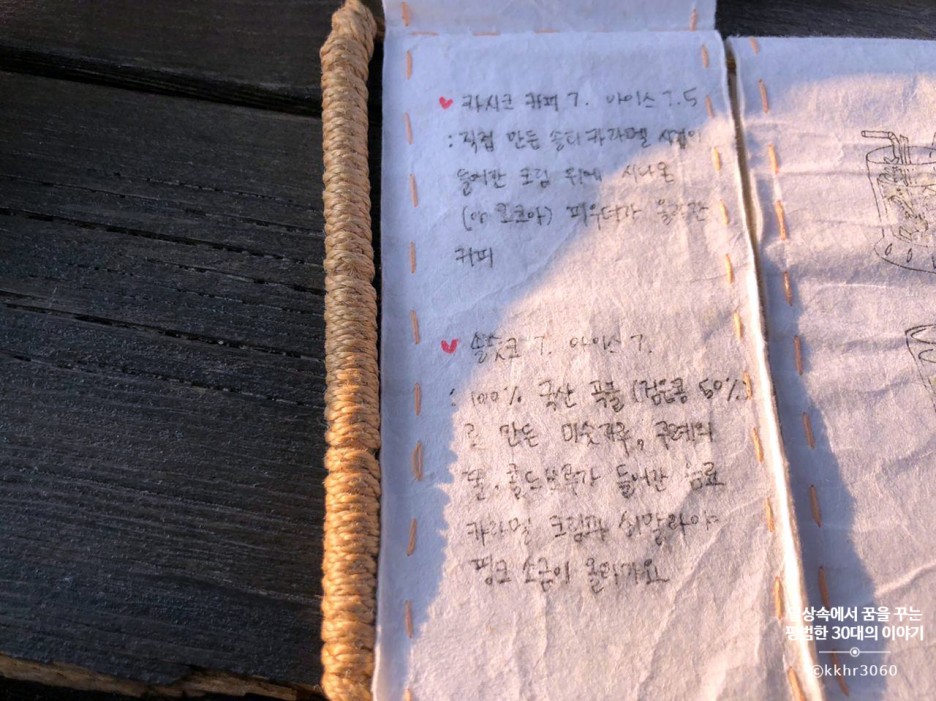 ♥ 카시코 커피 7. 아이스 7.5
: 직접 만든 솔티카라멜 시럽이
들어간 크림 위에 시나몬
(or 코코아) 파우더가 올라간
커피
♥ 7. 아이스 7.
: 100% 국산 곡물 (검은콩 50%)
로 만든 미숫가루, 구례의
꿀, 콜드브루가 들어간 음료
카라멜 크림과 히말라야
핑크 소금이 올라가요
일상속에서 꿈을 꾸는
평범한 30대의 이야기
©kkhr3060